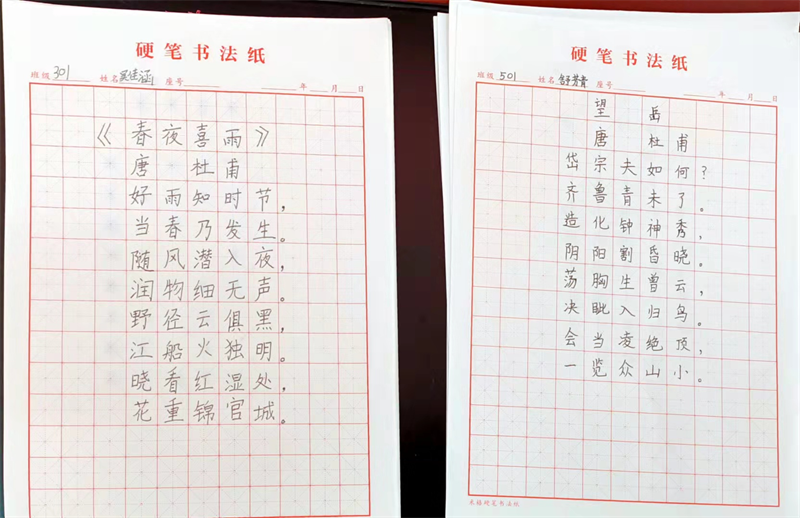 硬笔书法纸
班级 301 姓名 吴佳涵 座号 年 月 日
《春夜喜雨》
唐 杜甫
好雨知时节，
当春乃发生。
随风潜入夜，
润物细无声。
野径云俱黑，
江船火独明。
晓看红湿处，
花重锦官城。
硬笔书法纸
班级 501 姓名 舒芳青 座号 年 月 日
望 岳
唐 杜甫
岱宗夫如何？
齐鲁青未了。
造化钟神秀，
阴阳割昏晓。
荡胸生曾云，
决眦入归鸟。
会当凌绝顶，
一览众山小。
硬笔书法纸